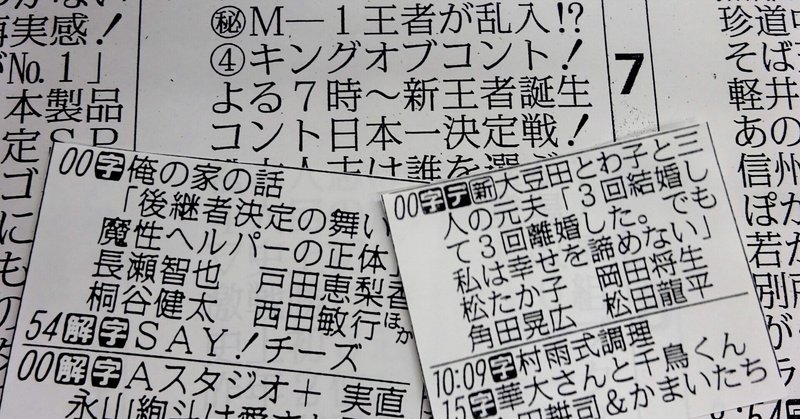 再実感！
がNo.1」
本製品
定ＳＰ
㊙Ｍ―１王者が乱入!?
④キングオブコント！
よる７時～新王者誕生
コント日本一決定戦！
は誰を選
7
珍道中
そば
軽井
あの
信州
ぽか
若
別所
00字俺の家の話
「後継者決定の舞い
魔性ヘルパーの正体」
長瀬智也　戸田恵梨香
桐谷健太　西田敏行ほか
54解字ＳＡＹ！チーズ
00解字Ａスタジオ＋　実直
永山絢斗は愛さ
00字デ新大豆田とわ子と三
人の元夫「３回結婚し
て３回離婚した。でも
私は幸せを諦めない」
松たか子　岡田将生
角田晃広　松田龍平
10:09字村雨式調理
15字華大さんと千鳥くん
＆かまいたち